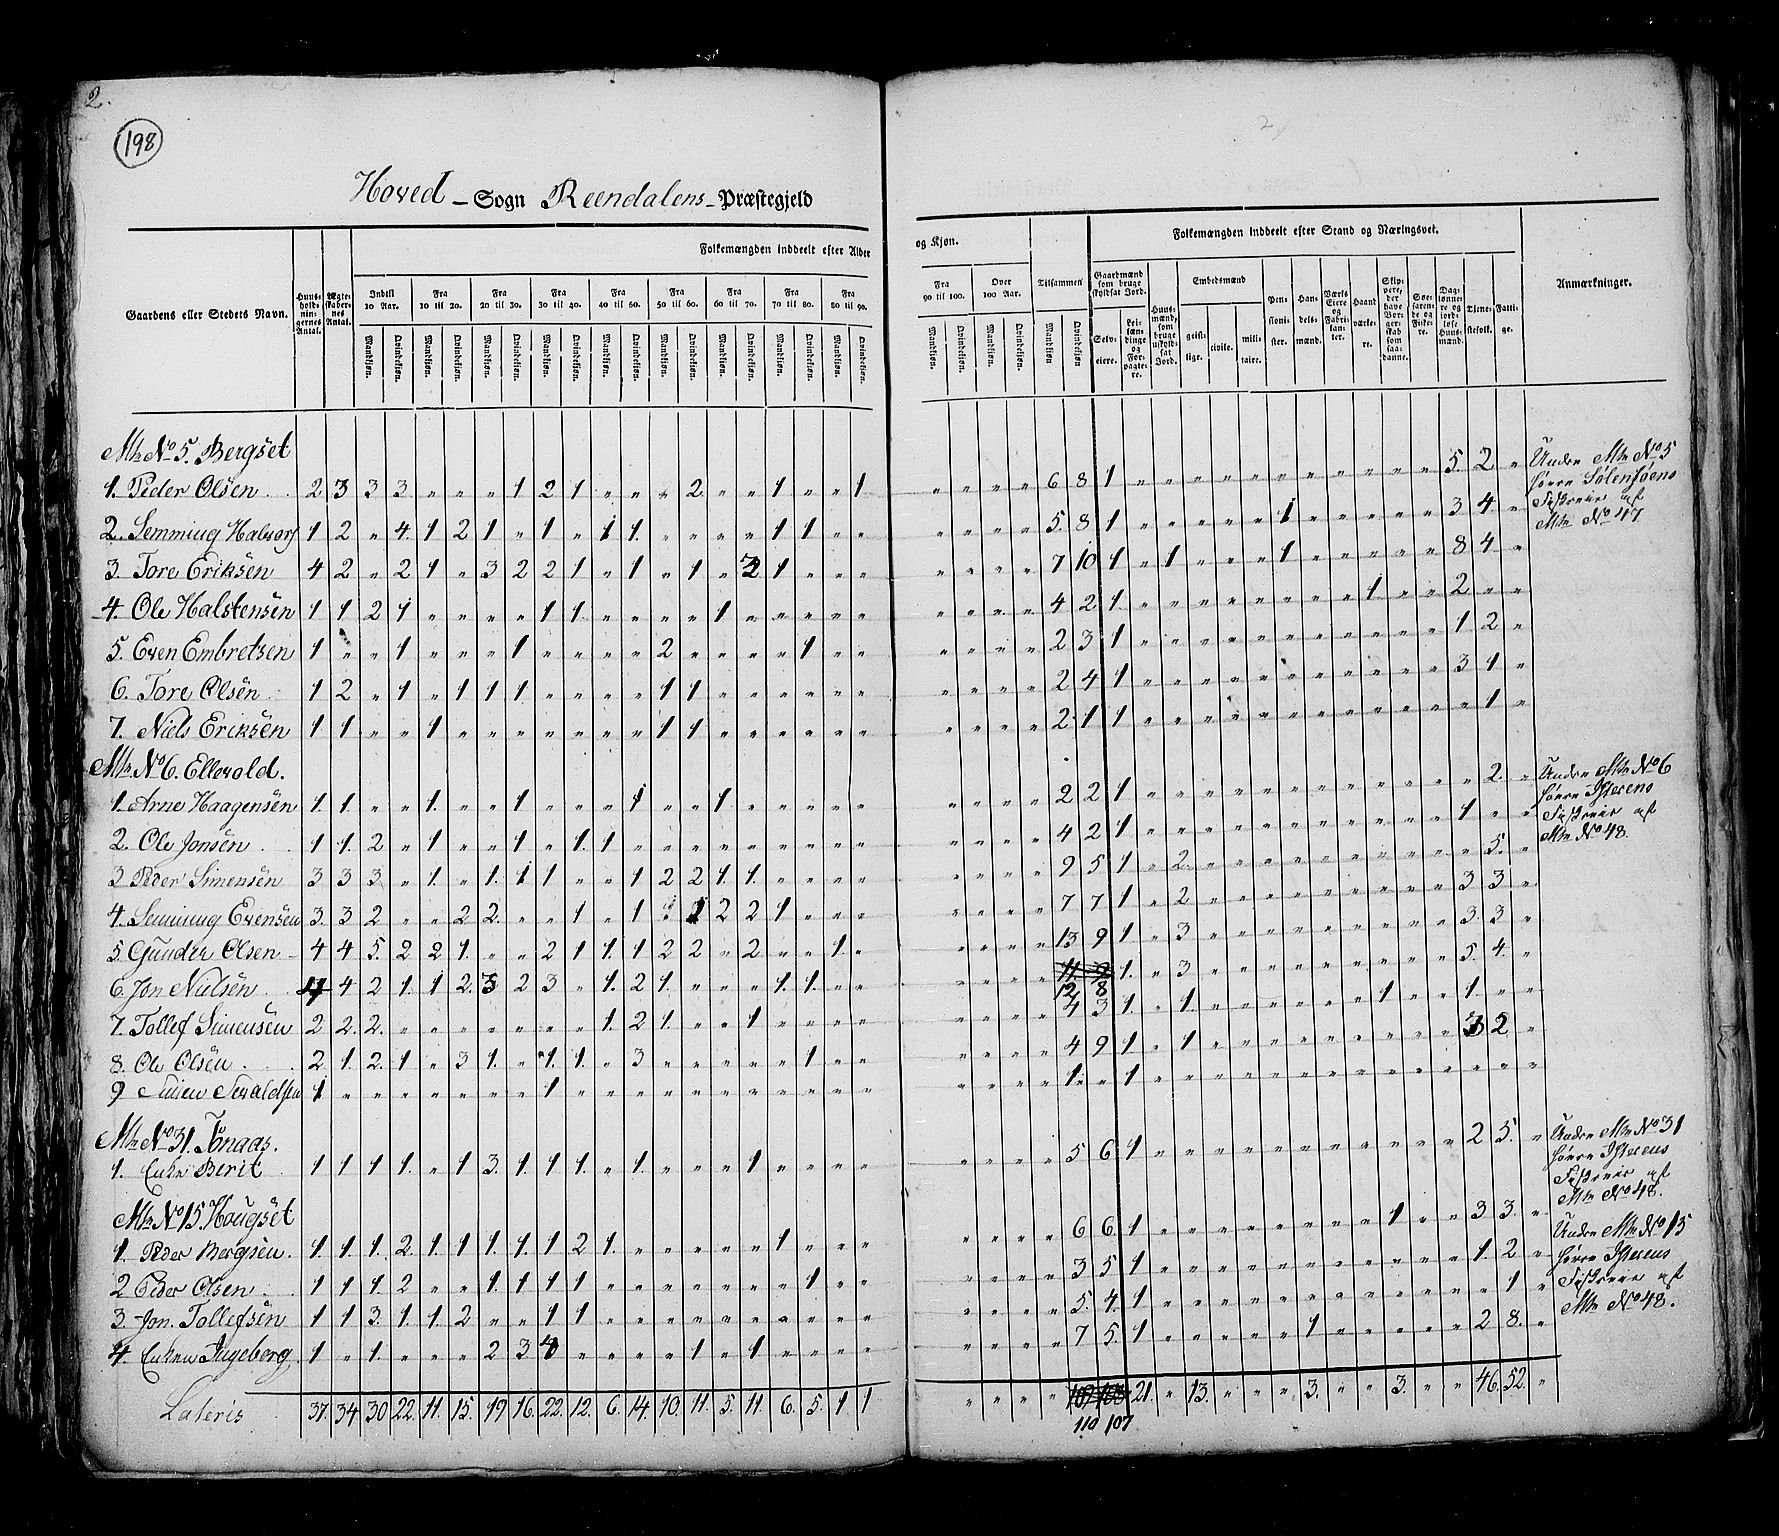 2.
198
2
Hoved - Sogn Reendalens - Præstegjeld
Folkemængden inddeelt efter Alder og Kjøn.
Folkemængden inddeelt efter Stand og Næringsvei.
Gaardens eller Stedets Navn.
Huusholdningernes Antal.
Ægteskabernes Antal.
Indtil 10 Aar.
Fra 10 til 20.
Fra 20 til 30.
Fra 30 til 40.
Fra 40 til 50.
Fra 50 til 60.
Fra 60 til 70.
Fra 70 til 80.
Fra 80 til 90.
Fra 90 til 100.
Over 100 Aar.
Tilsammen
Mandkjøn. Qvindekjøn.
Gaardmænd som bruge skyldsat Jord.
Selveiere.
Leilændinge og Forpagtere.
Huusmænd, som bruge uskyldsat Jord.
Embedsmænd
geistlige. civile. militaire.
Pensionister.
Handelsmænd.
Værks Eiere og Fabrikanter.
Haandværkere.
Skippere, der have Borgerskab som saadanne.
Søefarende og Fiskere.
Dagslønnere og jordløse Huusmænd.
Tjenestefolk.
Fattige.
Anmærkninger.
Mtr No 5. Bergset
1. Peder Olsen. 2 3 3 3 " " " 1 2 1 " " " 2 " " 1 " " 1 " " " " 6 8 1 " " " " " " " " " " " 5. 2 "
2. Semming Halvors 1 2 " 4. 1 2 1 " 1 " 1 1. " " " " 1 1 " " " " " " 5. 8 1 " " " " " 1 " " " " " 3 4 "
3. Tore Eriksen 4 2 " 2 1 " 3 2 2 1 " 1 " 1 " 2 1 " " " " " " " 7 10 1 " 1 " " " 1 " " " " " 8 4 "
4. Ole Halstensen 1 1 2 1 " " " " 1 1 " " " " 1 " " " " " " " " " 4 2 1 " " " " " " " " 1 " " 2 " "
5. Even Embretsen 1 " " 1 " " " 1 " " " " 2 " " " " 1 " " " " " " 2 3 1 " " " " " " " " " " " 1 2 "
6. Tore Olsen 1 2 " 1 " 1 1 1 " " " " 1 1 " " " " " " " " " " 2 4 1 " " " " " " " " " " " 3 1 "
7. Niels Eriksen 1 1 " " 1 " " " " " " " 1 1 " " " " " " " " " " 2 1 1 " " " " " " " " " " " " 1 "
Mtr No 6. Ellevold.
1. Arne Haagensen 1. 1. " " 1. " " 1 " " " 1 " " 1 " " " " " " " " " 2 2 1 " " " " " " " " " " " " 2. "
2. Ole Jonsen. 1 1. 2 " 1 " " 1 " 1. 1 " " " " " " " " " " " " " 4 2 1 " " " " " " " " " " " 1 " "
3 Peder Simensen 3 3 3 " 1. " 1. 1 1 " " 1 2 2 1. 1. " " " " " " " " 9 5 1 " 2. " " " " " " " " " " 5. "
4. Semming Evensen 3. 3 2 " " 2 2. " " 1 " 1 " 1 2 2 1 " " " " " " " 7 7 1 " 2 " " " " " " " " " 3 3 "
5. Gunder Olsen 4 4 5. 2 2 1. " " 2 1 1. 1 2 2 " 2 " " 1. " " " " " 13 9 1 " 3 " " " " " " " " " 3. 3. "
6. Jon Nielsen. 4 4 2 1. 1 2. 3 2 3 " 1. 2 1. " " " 1. 1. " " " " " " 11. 9 12. 8 1. " 3 " " " " " " " " " 5. 4. "
7. Tollef Simensen 2 2. 2. " " " " " " " 1. 2 1. " " 1 " " " " " " " " 4 3 1. " 1. " " " " " " 1 " " 1. " "
8. Ole Olsen. 2 1. 2. 1 " 3 1. " 1. 1. " 3 " " " " " 1 " " " " " " 4 9 1 " 1 " " " " " " " " " 3 2 "
9 Simen 1 " " " " " " " 1 " " " " " " " " " " " " " " " 1. " 1 " " " " " " " " " " " " " "
Mtr No 31. Tonaas.
1. Enken Berit 1 1 1 1. " 1 3. 1. 1 1. " 1. " " " 1 " " " " " " " " 5 6 1 " " " " " " " " " " " 2 5. "
Mtr No 15. Hougset
1. Peder Bergsen. 1. 1. 1. 2 1. 1 1. 1. 1 2 1. " " " " " 1 " " " " " " " 6 6 1 " " " " " " " " 1 " " 3 3. "
2 Peder Olsen. 1 1 1. 2 " " 1. 1 1 1 " " " " " " " 1 " " " " " " 3 5 1 " " " " " " " " " " " 1. 2 "
3. Jon. Tollefsen 1 1 3. 1. 1. 2 " " 1 1 " " " " " " " " " " " " " " 5. 4. 1 " " " " " " " " " " " " 1 "
4. Enken Ingeborg 1 " 1. " " " 2 3 4 " " " " 1 " 1 " " " " " " " " 7 5. 1 " " " " " 1 " " " " " 2 8. "
Lateris 37. 34 30 22. 11. 15. 19 16. 22. 12. 6. 14. 10. 11. 5. 11. 6. 5. 1 1 " " " " 109 108 21. " 13. " " " 3. " " 3. " " 46. 52. "
110 107
Under Mtr No 5
hører Sølensøens
Fiskerie af
Mtr No 47
Under Mtr No 6
hører Isterens
Fiskerie af
Mtr No 48.
Under Mtr No 31
hører Isterens
Fiskerie af
Mtr No 48.
Under Mtr No 15
hører Isterens
Fiskerie af
Mtr No 48.